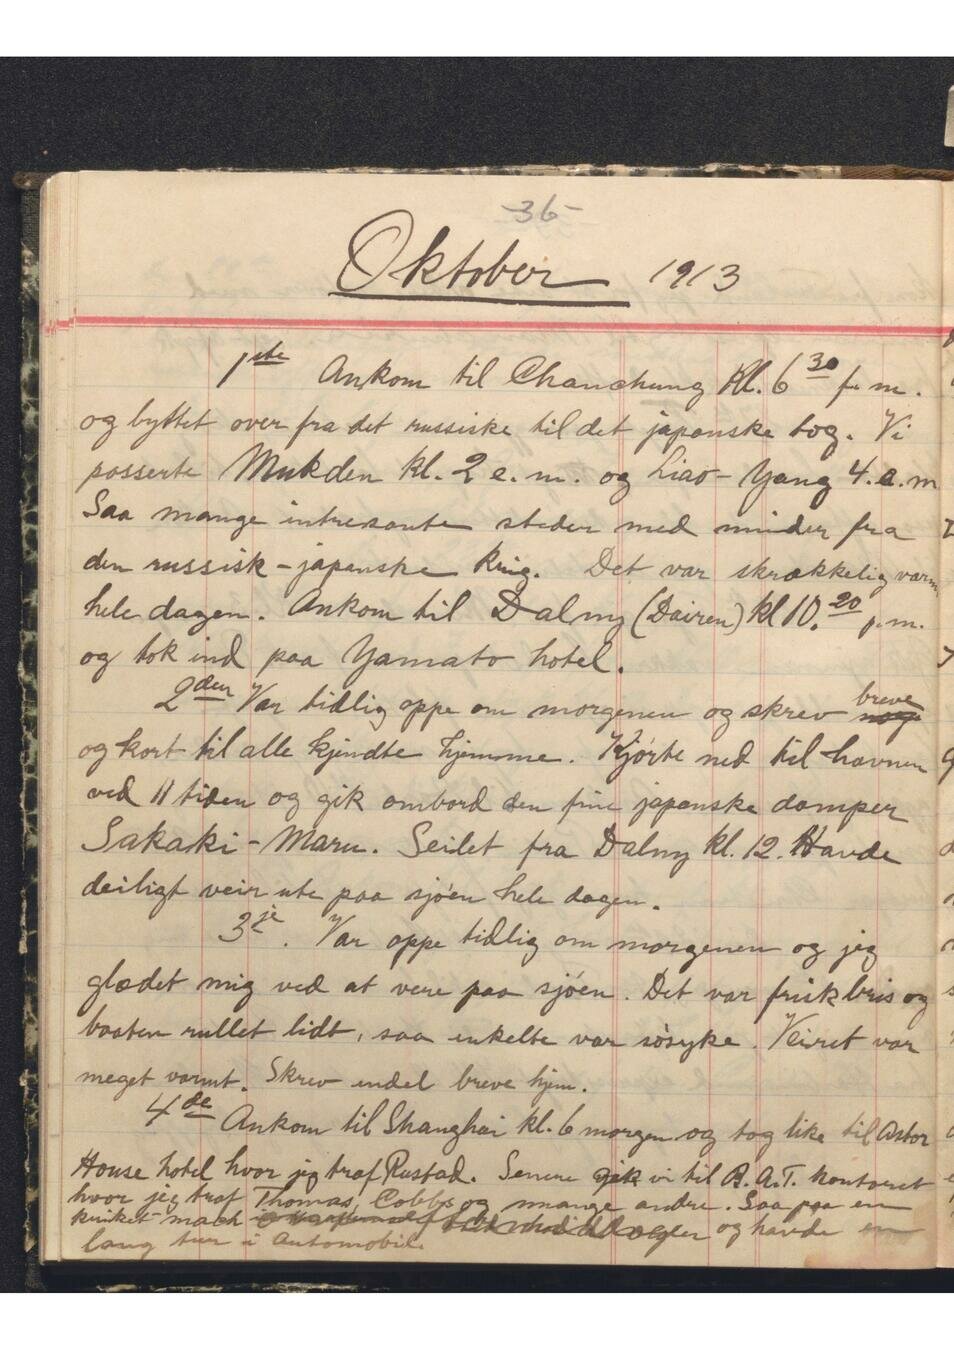 -36-
Oktober 1913
1ste Ankom til Chanchung Kl. 6 30 f. m.
og byttet over fra det russiske til det japanske tog. Vi
passerte Mukden kl. 2 e. m. og Liao-Yang 4. e. m
Saa mange intresante steder med minder fra
den russisk-japanske krig. Det var skrækkelig varm
hele dagen. Ankom til Dalny (Dairen) kl 10. 20 p. m.
og tok ind paa Yamato hotel.
2den Var tidlig oppe om morgenen og skrev breve
og kort til alle kjendte hjemme. Kjørte ned til havnen
ved 11 tiden og gik ombord den fine japanske damper
Sakaki-Maru. Seilet fra Dalny kl. 12. Havde
deiligt veir ute paa sjøen hele dagen.
3je. Var oppe tidlig om morgenen og jeg
glædet mig ved at vere paa sjøen. Det var frisk bris og
baaten rullet lidt, saa enkelte var søsyke. Veiret var
meget varmt. Skrev endel breve hjem.
4de Ankom til Shanghai kl. 6 morgen og tog like til Astor
House hotel hvor jeg traf Rustad. Senere gik vi til B. A. T. kontoret
hvor jeg traf Thomas, Cobbs og mange andre. Saa paa en
kriket mach og havde en
lang tur i Automobil.